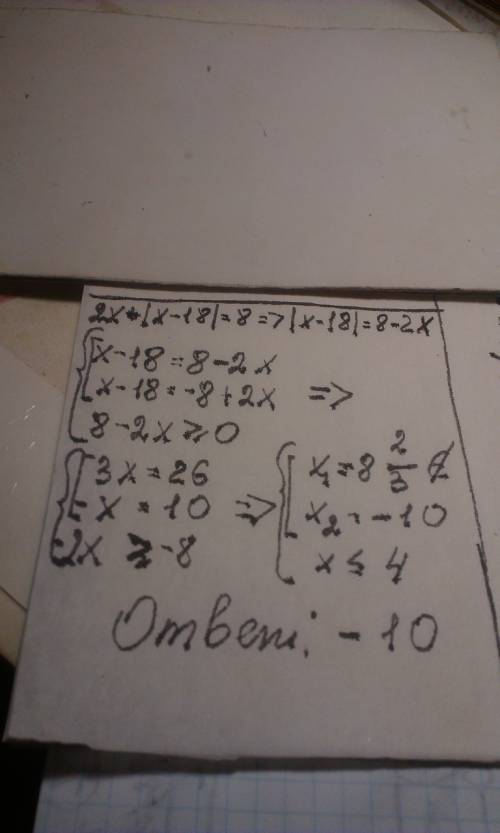 2x+|x-18|=8=>|x-18|=8-2x
x-18=8-2x
x-18=-8+2x =>
8-2x≥0
3x=26
-x=10 =>
-2x≥-8
x₁=8 2/3 ∉
x₂=-10
x≤4
Ответ: -10